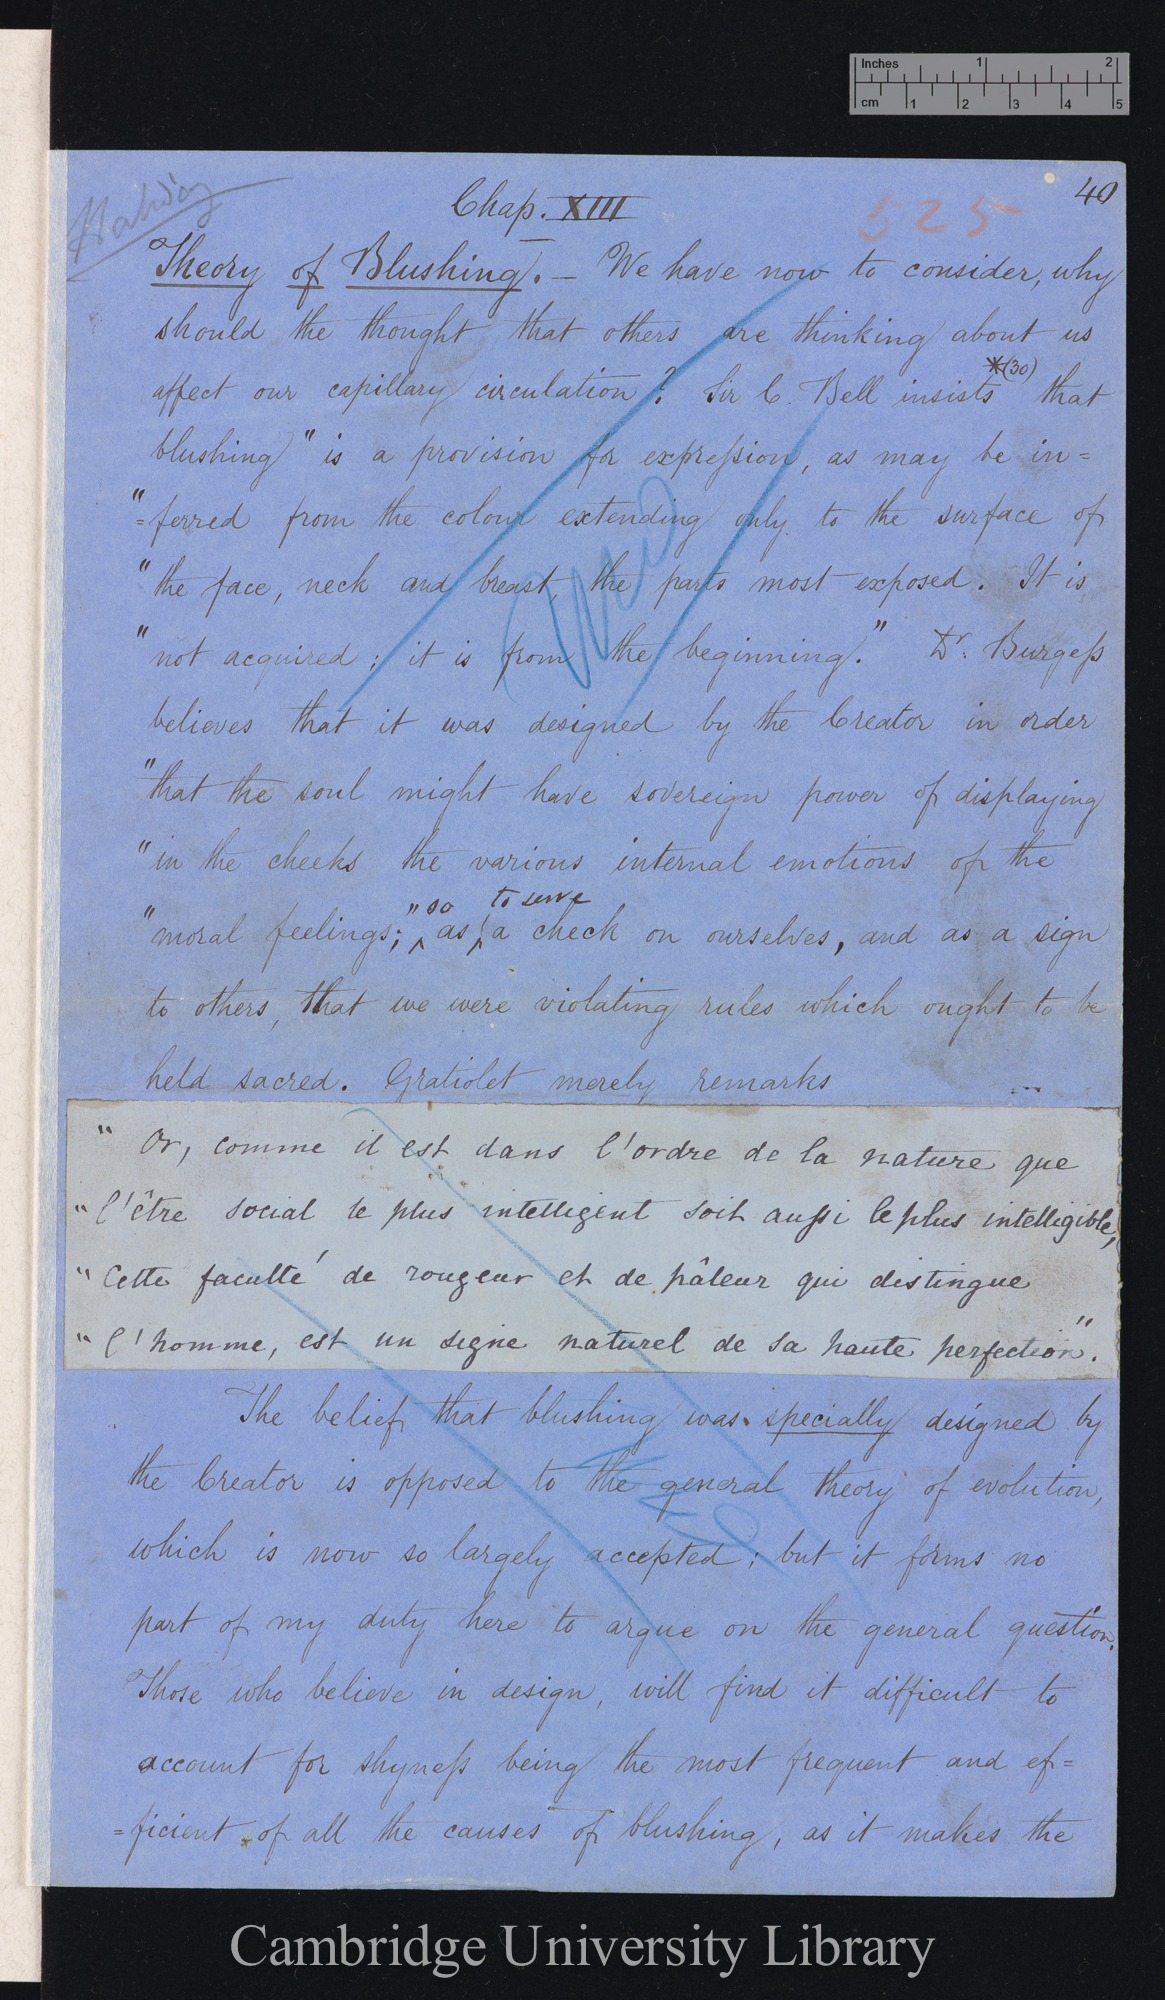 Inches 1 2
cm 1 2 3 4 5
40
Chap. XIII
525
Theory of Blushing. — We have now to consider, why
should the thought that others are thinking about us
affect our capillary circulation? Sir C. Bell insists *(30) that
blushing "is a provision for expression, as may be in=
"=ferred from the colour extending only to the surface of
"the face, neck and breast, the parts most exposed. It is
"not acquired; it is from the beginning." Dr. Burgess
believes that it was designed by the Creator in order
"that the soul might have sovereign power of displaying
"in the cheeks the various internal emotions of the
"moral feelings;" so as to serve a check on ourselves, and as a sign
to others, that we were violating rules which ought to be
held sacred. Gratiolet merely remarks
"Or, comme il est dans l'ordre de la nature que
"l'être social le plus intelligent soit aussi le plus intelligible,
"Cette faculté de rougeur et de pâleur qui distingue
"l'homme, est un signe naturel de sa haute perfection".
The belief that blushing was specially designed by
the Creator is opposed to the general theory of evolution,
which is now so largely accepted; but it forms no
part of my duty here to argue on the general question.
Those who believe in design, will find it difficult to
account for shyness being the most frequent and ef=
=ficient of all the causes of blushing, as it makes the
Cambridge University Library